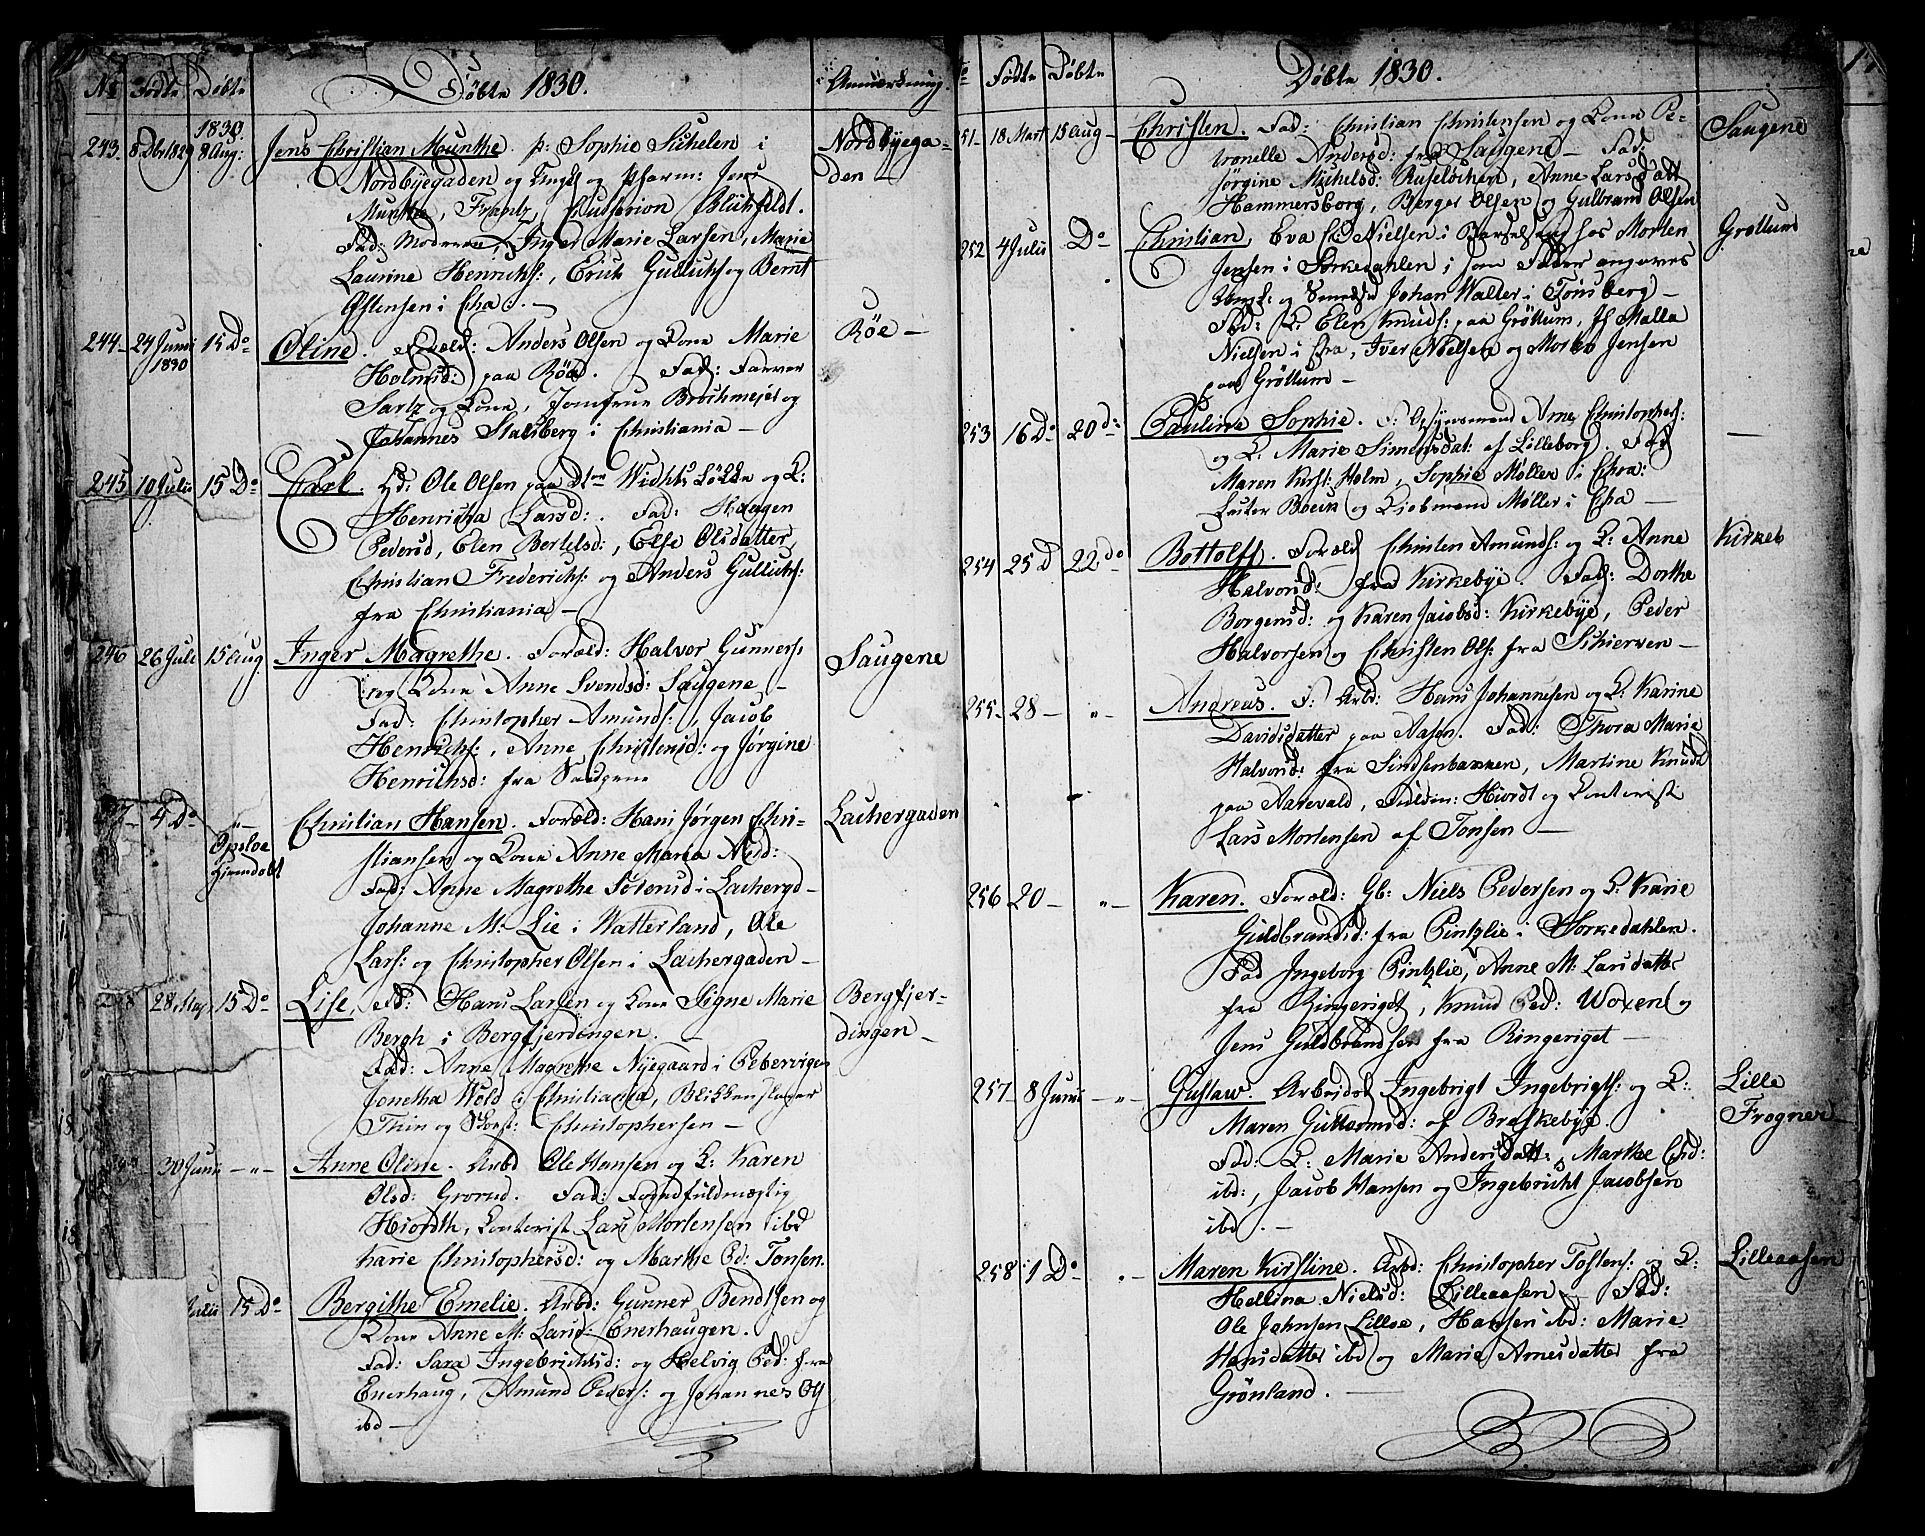 No Fødte Døbte Døbte 1830. Anmærkning.
1830.
243. 8 Dbr 1829 8 Aug: Jens Christian Munthe. p: Sophie Michelen i Nordbyega-
Nordbyegaden og Ungk og Pharm: Jens den
Munthe, Frantz Blichfeldt.
Fad: Moderen, Inger Marie Larsen, Marie
Laurine Henrichs:, Erich Gullichs og Bernt
Østensen i Chra. —
244 24 Junii 15 Do Oline. Foræld: Anders Olsen og Kone Marie Røe —
1830 Holmsd: paa Røed. Fad: Farver
Sartz og Kone, Jomfrue Brochmejer og
Johannes Stalsberg i Christiania —
245 10 Julii 15 Do Carl. Ole Olsen paa Løkke og K:
Henricha Larsd:. Fad: Haagen
Pedersd, Elen Bertelsd:, Else Olsdatter,
Christian Frederichs: og Anders Gullichs:
fra Christiania —
246 26 Juli 15 Aug Inger Magrethe. Foræld: Halvor Gunners: Saugene
og Kone Anne Svendsd: Saugene —
Fad: Christopher Amunds:, Jacob
Henrichs:, Anne Christensd: og Jørgine
Henrichsd: fra Saugene
4 Do „— Christian Hansen. Foræld: Hans Jørgen Chri- Lachergaden
Opsloe stiansen og Kone Anne Maria Nedd:
Hjemdøbt Fad: Anne Magrethe Sørensd i Lachergd —
Johanne M: Lie i Watterland, Ole
Lars: og Christopher Olsen i Lachergaden —
28 Maj 15 Do Lise, Fd: Hans Larsen og Kone Signe Marie Bergfjer-
Bergh i Bergfjerdingen. dingen —
Fad: Anne Magrethe Nyegaard i Pebervigen
Jonetha Wold i Christiania, Blikkenslager
Thin og Christophersen —
30 Junii — „ — Anne Oline. Arbd Ole Hansen og K: Karen
Olsd: Grorud. Fad: Fogedfuldmægtig
Hiorth, Contorist Lars Mortensen ibd
Karie Christophersd: og Marthe Pd: Tonsen.
Julii 15 Do Bergithe Emelie. Arbd: Gunner Bendtsen og
Kone Anne M: Larsd: Enerhaugen.
Fad: Sara Ingebrichtsd: og Helvig Pd: fra
Enerhaug, Amund Peders: og Johannes Ols
ibd —
Fødte Døbte Døbte 1830.
51 — 18 Mart 15 Aug — Christen. Fad: Christian Christensen og Kone Pe- Saugene
tronelle Andersd: fra Saugene — Fad:
Jørgine Michelsd: Ruseløchen, Anne Larsdatt
Hammersborg, Berger Olsen og Gulbrand Olsen
252 4 Julii Do Christian, Eva C: Nielsen i Barselseng hos Morten Grøttum
Jensen i Sørkedahlen, som Fader angaves
Ungk: og Johan Walter i Tønsberg —
Fad: K: Elen Knuds: paa Grøttum, Jf Malla
Nielsen i Chra, Iver Nielsen og Morten Jensen
paa Grøttum —
253 16 Do 20 do: Pauline Sophie. F: Opsynsmand Arne Christophers: —
og K: Marie Simensdat: af Lilleborg. Fad
Maren Kirst: Holm, Sophie Møller i Chra:
Boeck og Kiøbmand Møller i Chra —
254 25 D 22 do Bottolff. Foræld Christen Amunds: og K: Anne Kirkeb
Halvorsd: fra Kirkebye. Fad: Dorthe
Borgersd: og Karen Jacobsd: Kirkebye, Peder
Halvorsen og Christen Ols: fra Schierven —
255 — 28 — „ — Andreas. F: Arbd: Hans Johannesen og K: Karine
Davidsdatter paa Aasen. Fad: Thora Marie
Halvorsd: fra Sindsenbakken, Martine Knudsd
paa Aarevald, Fuldm: Hiordt og Contorist
Lars Mortensen af Tonsen —
256 20 — „ — Karen. Foræld: Gb: Niels Pedersen og K: Karie
Guldbrandsd: fra Pintzlie i Sørkedahlen.
Fad Ingeborg Pintzlie, Anne M: Larsdatter
fra Ringeriget, Knud Ped: Woxen og
Jens Guldbrandsen fra Ringeriget —
257 — 8 Junii — „ — Gustaw. Arbeidsk Ingebrigt Ingebrigts: og K: Lille
Maren Guttormsd: af Breskebye. Frogner —
Fad: K: Marie Andersdatt:, Marthe Cd:
ibd:, Jacob Hansen og Ingebricht Jacobsen
ibd. —
258 1 Do „ — Maren Kirstine. Arbd: Christopher Tostens: og K: Lilleaasen
Hellina Nielsd: Lilleaasen — Fad:
Ole Johnsen Lilloe, Hansen ibd: Marie
Hansdatter ibd og Marie Arnesdatter fra
Grønland. —